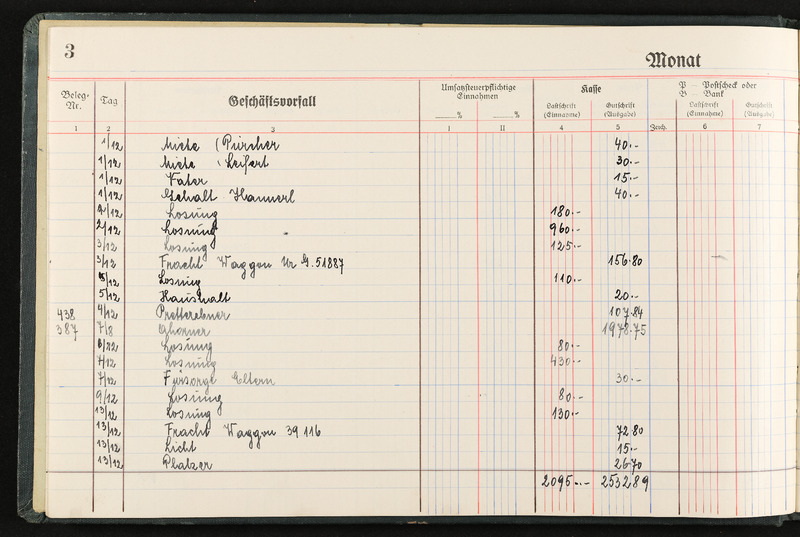 3
Monat
Beleg-Nr. Tag Geschäftsvorfall Umsatzsteuerpflichtige Einnahmen Kasse P – Postscheck oder B – Bank
% % Lastschrift (Einnahme) Gutschrift (Ausgabe) Zeich. Lastschrift (Einnahme) Gutschrift (Ausgabe)
1 2 3 I II 4 5 6 7
1/12 Miete (Pürcher 40.-
1/12 Miete ( Leifert 30.-
1/12 Vater 15.-
1/12 Gehalt Hannerl 40.-
2/12 Losung 180.-
2/12 Losung 960.-
3/12 Losung 125.-
3/12 Fracht Waggon Nr G. 51887 156.80
5/12 Losung 110.-
5/12 Haushalt 20.-
438 4/12 Pretterebner 107.84
387 7/8 1978.75
6/12 Losung 80.-
7/12 Losung 430.-
7/12 Fürsorge Eltern 30.-
9/12 Losung 80.-
13/12 Losung 130.-
13/12 Fracht Waggon 39 116 72.80
13/12 Licht 15.-
13/12 Platzer 26.70
2095.-- 2532.89